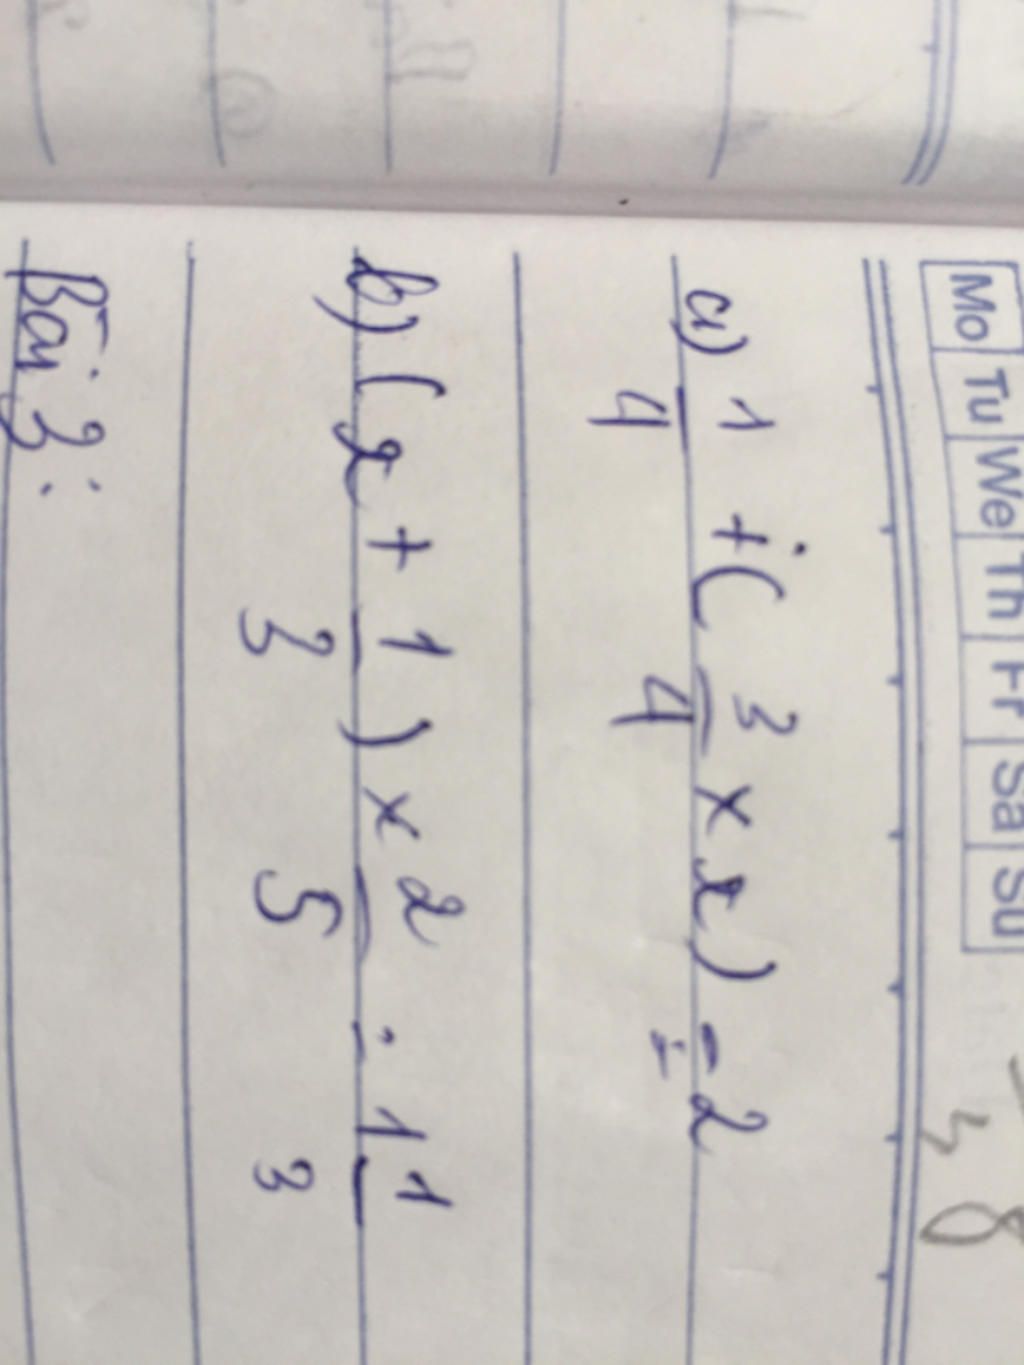 Mo Tu We Th Fr Sa Su
a) 1/4 + ( 3/4 x x ) = 2
b) ( x + 1/3 ) x 2/5 = 1 1/3
Bài 3 :